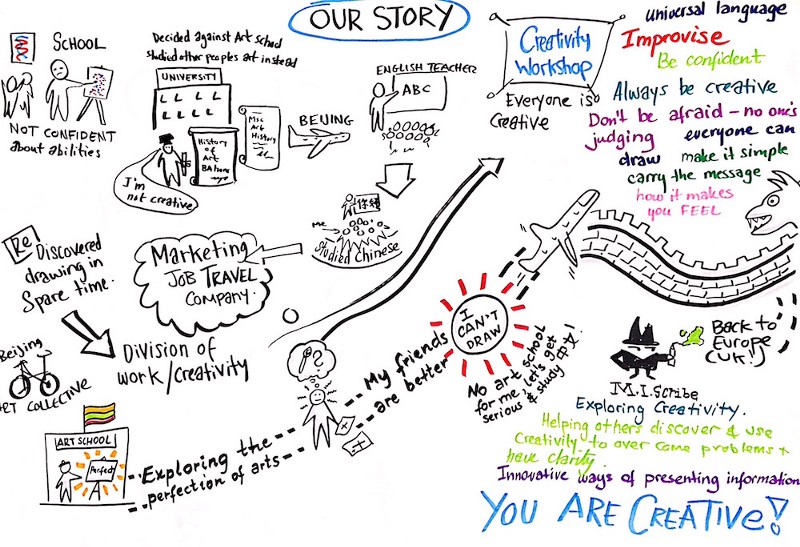 OUR STORY
SCHOOL
NOT CONFIDENT
about abilities
Decided against Art School
studied other peoples art instead
UNIVERSITY
I'm
not creative
History
of
Art
BA hons
Msc
Art
History
BEIJING
ENGLISH TEACHER
ABC
Me
Studied Chinese
Marketing
JOB TRAVEL
COMPANY.
Re
Discovered
drawing in
Spare time.
Division of
work/creativity
Beijing
ART COLLECTIVE
ART SCHOOL
Perfect
Exploring the
perfection of arts
My friends
are better
I
CAN'T
DRAW
No art school
for me, let's get
serious & study 中文!
Creativity
Workshop
Everyone is
Creative
universal language
Improvise
Be confident
Always be creative
Don't be afraid – no one's
judging everyone can
draw make it simple
carry the message
how it makes
you FEEL
Back to
Europe
(UK!)
M.I.Scribe
Exploring Creativity.
Helping others discover & use
Creativity to over come problems +
have clarity.
Innovative ways of presenting information
YOU ARE CREATIVE!